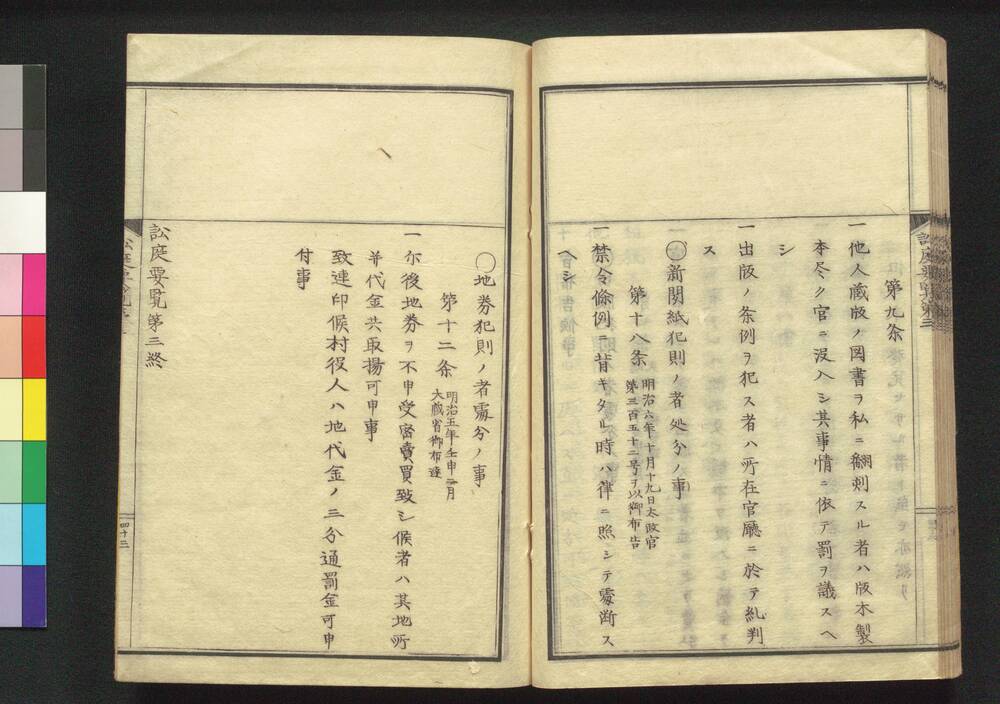 第九条
一他人蔵版ノ図書ヲ私ニ翻刺スル者ハ版木製
本尽ク官ニ没入シ其事情ニ依テ罰ヲ議スヘ
シ
一出版ノ条例ヲ犯ス者ハ所在官廳ニ於テ糺判
ス
〇新聞紙犯則ノ者処分ノ事
第十八条
明治六年十月十九日太政官
第三百五十二号ヲ以御布告
一禁令條例ニ背キタル時ハ律ニ照シテ處断ス
ヘシ
〇地券犯則ノ者處分ノ事
第十二条
明治五年壬申二月
大蔵省御布達
一尓後地券ヲ不申受密賣買致シ候者ハ其地所
并代金共取揚可申事
致連印候村役人ハ地代金ノ三分通罰金可申
付事
訟庭要覧第三終
四十三